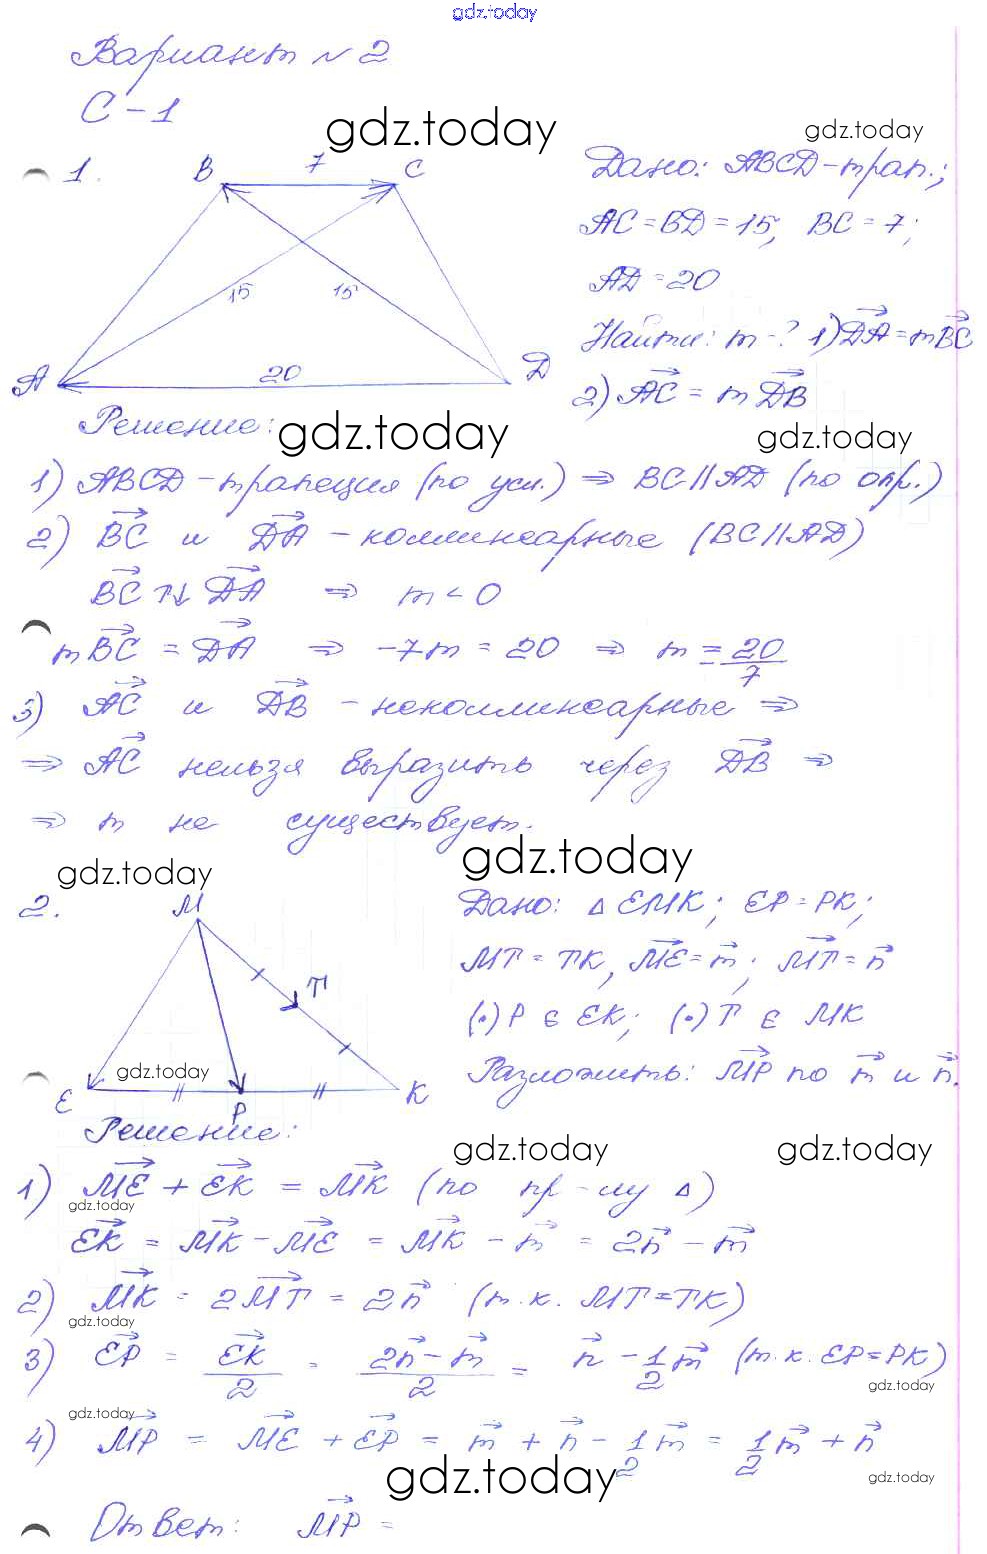 gdz.today
Вариант №2
С-1
gdz.today
gdz.today
1.
B 7 C
15 15
A 20 D
Дано: ABCD-трап.;
AC=BD=15, BC=7;
AD=20
Найти: m-? 1) DA→=mBC→
2) AC→ = mDB→
Решение:
gdz.today
gdz.today
1) ABCD-трапеция (по усл.) ⇒ BC//AD (по опр.)
2) BC→ и DA→ - коллинеарные (BC//AD)
BC→ ↑↓ DA→ ⇒ m<0
mBC→ = DA→ ⇒ -7m = 20 ⇒ m = 20/7
3) AC→ и DB→ - неколлинеарные ⇒
⇒ AC→ нельзя выразить через DB→ ⇒
⇒ m не существует.
gdz.today
gdz.today
2.
M
T
E P K
gdz.today
Дано: △EMK; EP=PK;
MT=TK, ME→=m→; MT→=n→
(·)P ∈ EK; (·)T ∈ MK
Разложить: MP→ по m→ и n→.
Решение:
gdz.today
gdz.today
1) ME→ + EK→ = MK→ (по пр-лу △)
gdz.today
EK→ = MK→ - ME→ = MK→ - m→ = 2n→ - m→
2) MK→ = 2MT→ = 2n→ (т.к. MT=TK)
gdz.today
3) EP→ = EK→/2 = (2n→ - m→)/2 = n→ - 1/2 m→ (т.к. EP=PK)
gdz.today
gdz.today
4) MP→ = ME→ + EP→ = m→ + n→ - 1/2 m→ = 1/2 m→ + n→
gdz.today
gdz.today
Ответ: MP→ =